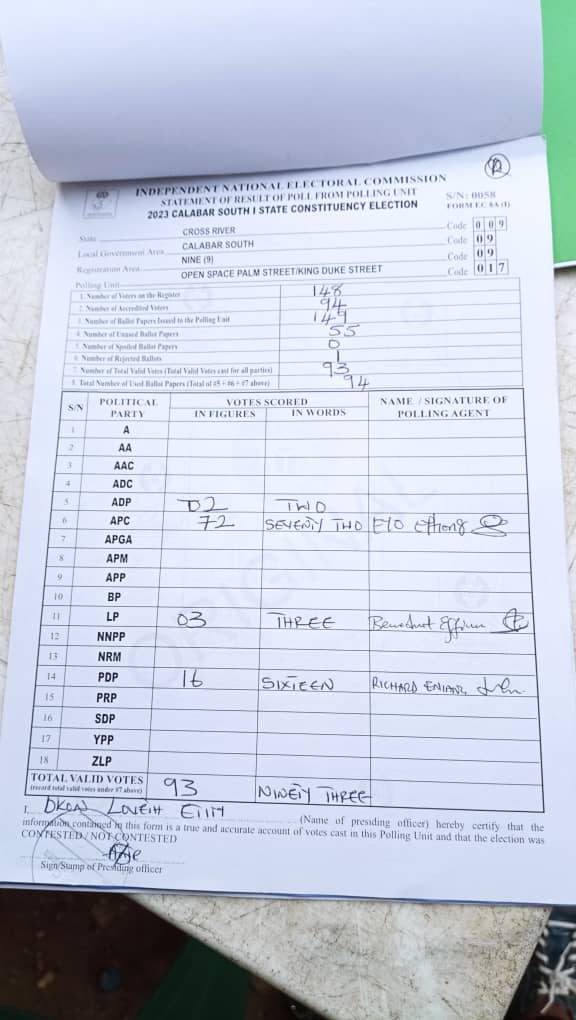 R
INDEPENDENT NATIONAL ELECTORAL COMMISSION
STATEMENT OF RESULT OF POLL FROM POLLING UNIT
S/N: 0058
2023 CALABAR SOUTH I STATE CONSTITUENCY ELECTION
FORM EC 8A (I)
State CROSS RIVER Code 0 0 9
Local Government Area CALABAR SOUTH Code 0 9
Registration Area NINE (9) Code 0 9
Polling Unit OPEN SPACE PALM STREET/KING DUKE STREET Code 0 1 7
1. Number of Voters on the Register 148
2. Number of Accredited Voters 94
3. Number of Ballot Papers Issued to the Polling Unit 149
4. Number of Unused Ballot Papers 55
5. Number of Spoiled Ballot Papers 0
6. Number of Rejected Ballots 1
7. Number of Total Valid Votes (Total Valid Votes cast for all parties) 93
8. Total Number of Used Ballot Papers (Total of #5 + #6 + #7 above) 94
S/N POLITICAL PARTY VOTES SCORED NAME / SIGNATURE OF POLLING AGENT
IN FIGURES IN WORDS
1 A
2 AA
3 AAC
4 ADC
5 ADP 02 TWO
6 APC 72 SEVENTY TWO EYO Effiong
7 APGA
8 APM
9 APP
10 BP
11 LP 03 THREE
12 NNPP
13 NRM
14 PDP 16 SIXTEEN RICHARD
15 PRP
16 SDP
17 YPP
18 ZLP
TOTAL VALID VOTES 93 NINETY THREE
(record total valid votes under #7 above)
I, (Name of presiding officer) hereby certify that the
information contained in this form is a true and accurate account of votes cast in this Polling Unit and that the election was
CONTESTED / NOT CONTESTED
Sign/Stamp of Presiding officer
ORIGINAL